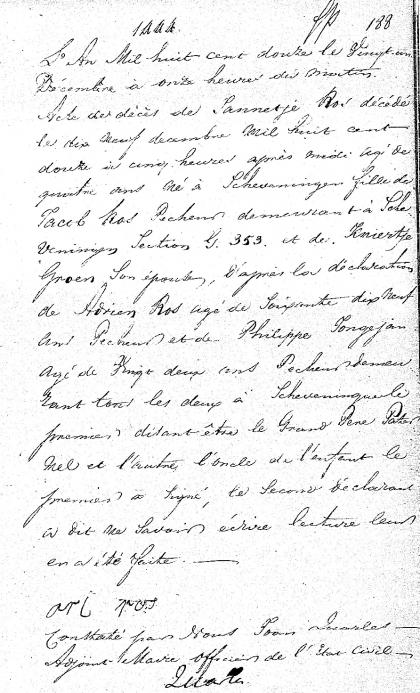 1444. 188
L'An Mil huit cent douze le Vingt-un
Décembre à onze heures du matin.
Acte de décès de Jannetje Ros décédée
le dix Neuf decembre Mil huit cent
douze à cinq heures après midi agé de
quatre ans Né à Scheveningen fille de
Jacob Ros Pecheur demeurant à Sche
Veningen Section G. 353. et de Kniertje
Groen, Son épouse, D'après la déclaration
de Adrien Ros agé de Soixante dix Neuf
ans Pecheur et de Philippe Jongejan
agé de Vingt deux ans Pecheur demeu
rant tous les deux à Scheveningue le
premier disant être le Grand Pere Pater
Nel et l'autre l'oncle de l'enfant le
premier a Signé, le Second Déclarant
a dit Ne Savoir écrire lecture leur
en a été faite.
Ros
Constaté par Nous Joan Quarles
Adjoint Maire Officier de l'Etat Civil
Quarles